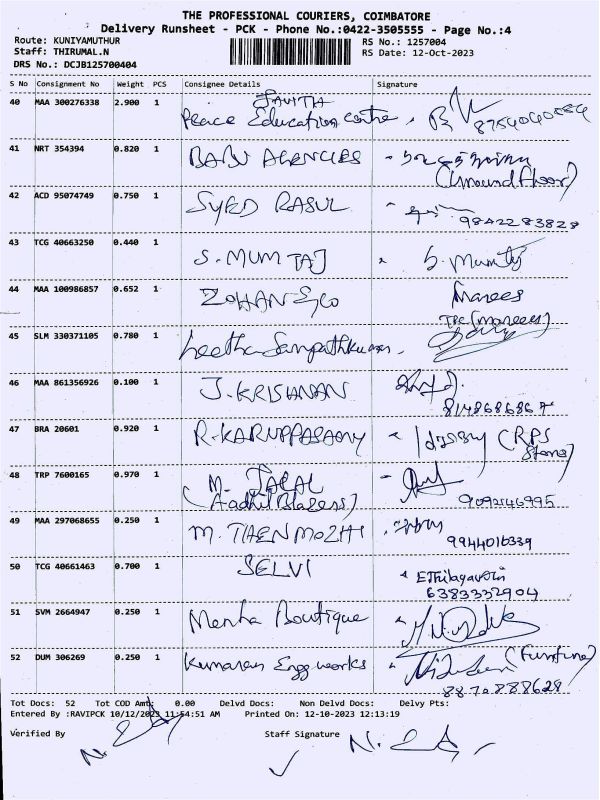 THE PROFESSIONAL COURIERS, COIMBATORE
Delivery Runsheet - PCK - Phone No.:0422-3505555 - Page No.:4
Route: KUNIYAMUTHUR RS No.: 1257004
Staff: THIRUMAL.N RS Date: 12-Oct-2023
DRS No.: DCJB125700404
S No Consignment No Weight PCS Consignee Details Signature
40 MAA 300276338 2.900 1 Peace Education Centre
41 NRT 354394 0.820 1 BABU AGENCIES
(Ground floor)
42 ACD 95074749 0.750 1 SYED RASUL
9842283828
43 TCG 40663250 0.440 1 S. MUMTAJ S. Mumtaj
44 MAA 100986857 0.652 1 ZOHAN & Co Marees
45 SLM 330371105 0.780 1
46 MAA 861356926 0.100 1 J. KRISHNAN
47 BRA 20601 0.920 1 R. KARUPPASAMY (RPS
48 TRP 7600165 0.970 1 M.
9092146995
49 MAA 297068655 0.250 1 M. THEN MOZHI
9944016339
50 TCG 40661463 0.700 1 SELVI
6383332904
51 SVM 2664947 0.250 1 Boutique
52 DUM 306269 0.250 1 Kumaran Engg works
8870888628
Tot Docs: 52 Tot COD Amt: 0.00 Delvd Docs: Non Delvd Docs: Delvy Pts:
Entered By :RAVIPCK 10/12/2023 11:54:51 AM Printed On: 12-10-2023 12:13:19
Verified By Staff Signature